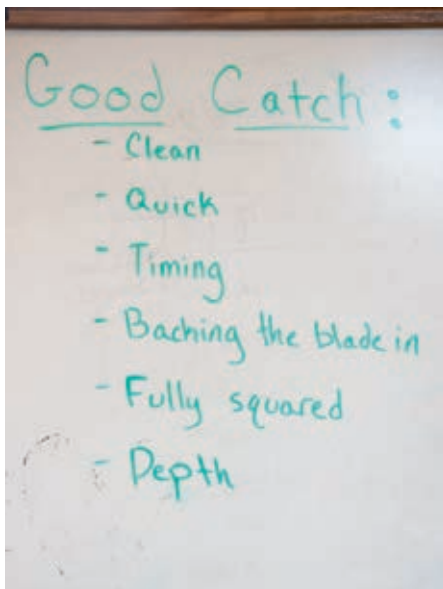 Good Catch:
- Clean
- Quick
- Timing
- Baching the blade in
- Fully squared
- Depth